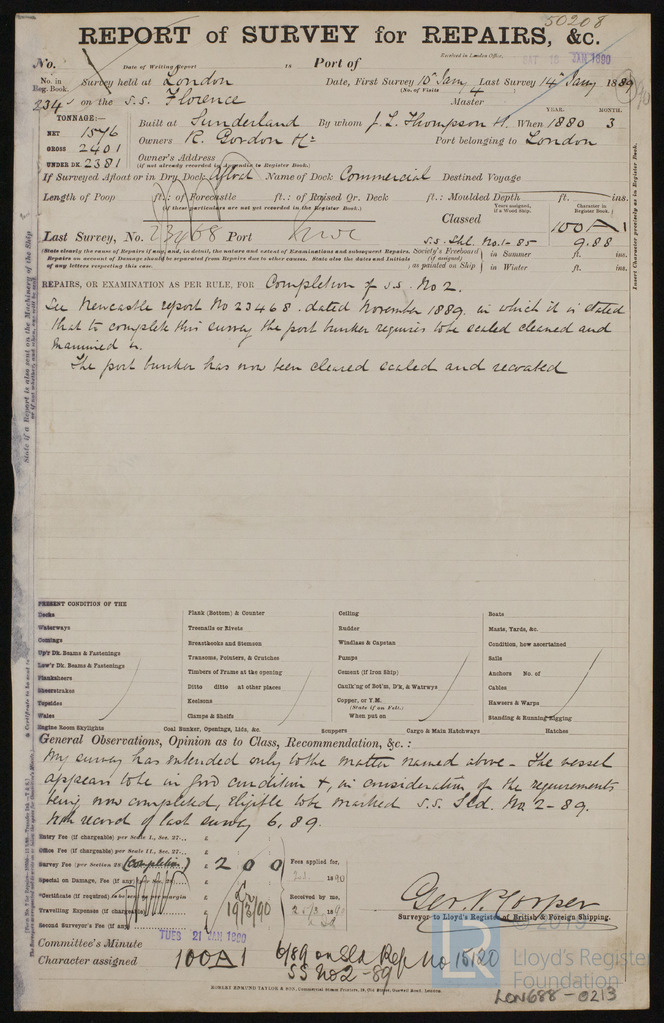 50208
REPORT of SURVEY for REPAIRS, &c.
No. Date of Writing Report 18 Port of Received in London Office, SAT 18 JAN 1890
No. in Reg. Book. Survey held at London Date, First Survey 10 Jany Last Survey 14 Jany 1889
(No. of Visits 4)
234 on the S.S. Florence Master
TONNAGE:— Built at Sunderland By whom J. L. Thompson When 1880 YEAR. MONTH. 3
NET 1576
GROSS 2401 Owners R. Gordon Port belonging to London
UNDER DK. 2381 Owner's Address
(if not already recorded in Appendix to Register Book.)
If Surveyed Afloat or in Dry Dock Afloat Name of Dock Commercial Destined Voyage
Length of Poop ft.: of Forecastle ft.: of Raised Qr. Deck ft.: Moulded Depth ft. ins.
(if these particulars are not yet recorded in the Register Book.) Years assigned, if a Wood Ship. Character in Register Book.
Classed 100A1
Last Survey, No. 23468 Port Nwc S.S. Shl. No.1-85 9.88
(State clearly the cause of Repairs if any, and, in detail, the nature and extent of Examinations and subsequent Repairs. Repairs on account of Damage should be separated from Repairs due to other causes. State also the dates and Initials of any letters respecting this case.
Society's Freeboard (if assigned) as painted on Ship in Summer ft. ins.
in Winter ft. ins.
Insert Character precisely as in Register Book.
REPAIRS, OR EXAMINATION AS PER RULE, FOR Completion of S.S. No 2.
See Newcastle report No 23468. dated November 1889. in which it is stated
that to complete this survey the port bunker requires to be scaled cleaned and
examined &c.
The port bunker has now been cleared scaled and recoated
State if a Report is also sent on the Machinery of the Ship
PRESENT CONDITION OF THE
Decks Plank (Bottom) & Counter Ceiling Boats
Waterways Treenails or Rivets Rudder Masts, Yards, &c.
Comings Breasthooks and Stemson Windlass & Capstan Condition, how ascertained
Up'r Dk. Beams & Fastenings Transoms, Pointers, & Crutches Pumps Sails
Low'r Dk. Beams & Fastenings Timbers of Frame at the opening Cement (if Iron Ship) Anchors No. of
Planksheers Ditto ditto at other places Caulk'ng of Bot'm, D'k, & Watrwys Cables
Sheerstrakes Keelsons Copper, or Y.M. (State if on Felt.) Hawsers & Warps
Topsides Clamps & Shelfs When put on Standing & Running Rigging
Wales
Engine Room Skylights Coal Bunker, Openings, Lids, &c. Scuppers Cargo & Main Hatchways Hatches
General Observations, Opinion as to Class, Recommendation, &c.:
My survey has extended only to the matter named above — The vessel
appears to be in good condition &, in consideration of the requirements
being now completed, eligible to be marked S.S. Lld. No. 2-89.
record of last survey 6,89.
Entry Fee (if chargeable) per Scale I., Sec. 27... £
Office Fee (if chargeable) per Scale II., Sec. 27... £
Survey Fee (per Section 28) (Completion) £ 2 0 0 Fees applied for, 1890
Special on Damage, Fee (if any) £
*Certificate (if required) to be as per margin 19/3/90 Received by me,
Travelling Expenses (if chargeable) £
Second Surveyor's Fee (if any)
Surveyor to Lloyd's Register of British & Foreign Shipping.
TUES 21 JAN 1890
Committee's Minute
Character assigned 100A1 6/89 on Sld Rep No 15180
SS No2-89
ROBERT EDMUND TAYLOR & SON, Commercial Steam Printers, 19, Old Street, Goswell Road, London.
LR
2019
Lloyd's Register
Foundation
LON688-0213